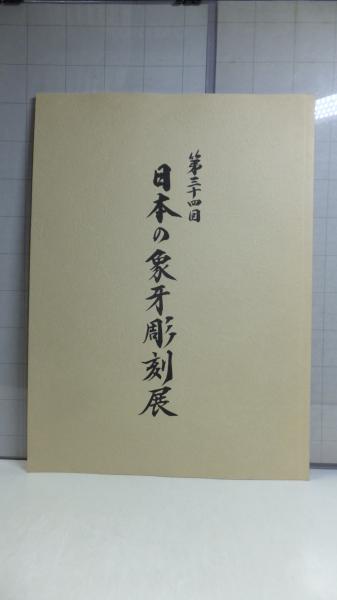 第三十四回
日本の象牙彫刻展